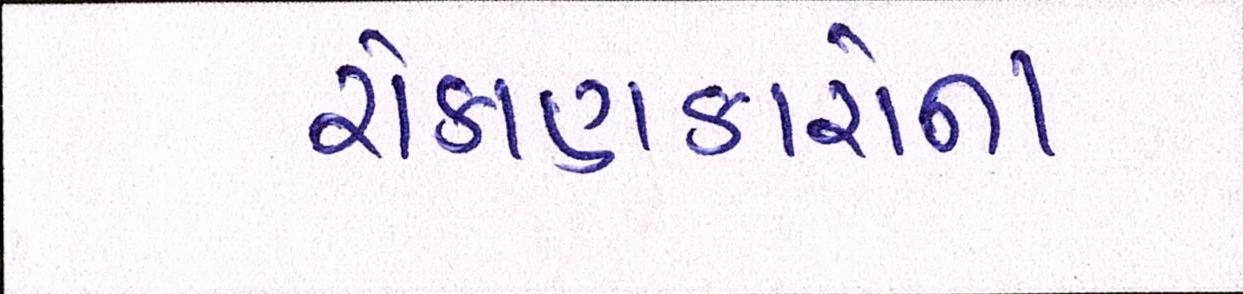 રોકાણકારોના